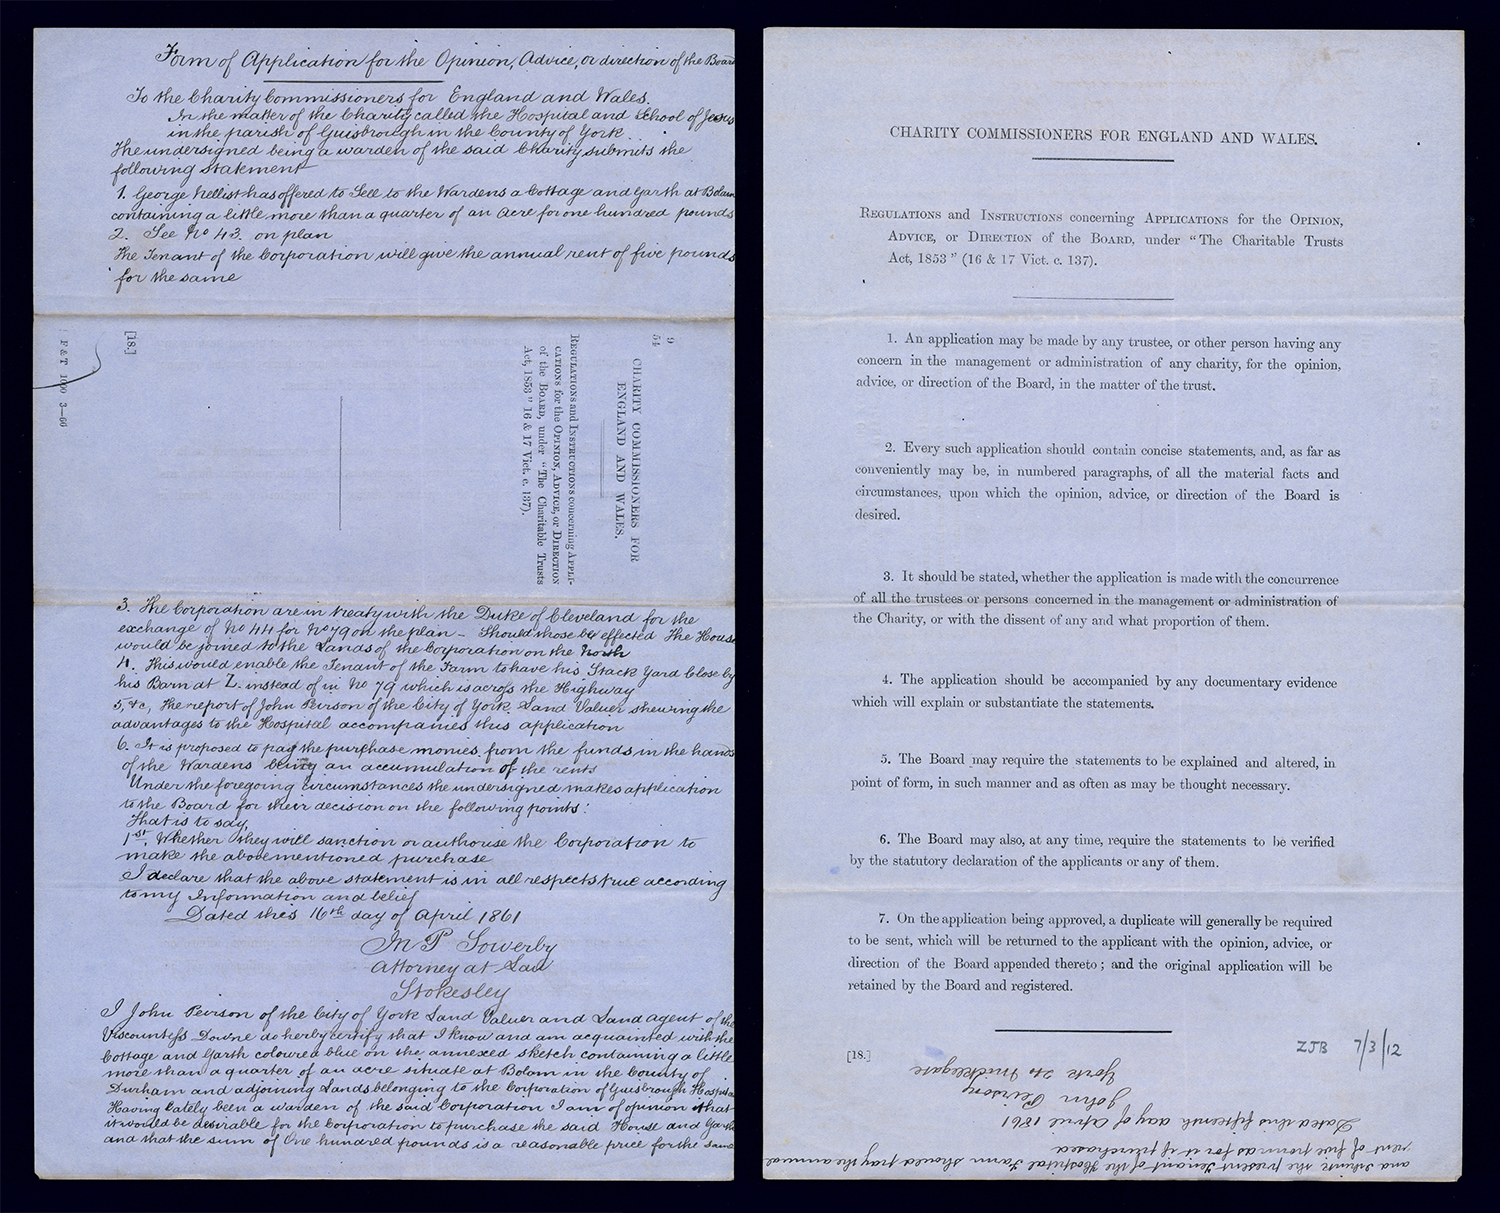 Form of Application for the Opinion, Advice, or direction of the Board
To the Charity Commissioners for England and Wales.
In the matter of the Charity called the Hospital and School of Jesus
in the parish of Guisbrough in the County of York.
The undersigned being a warden of the said Charity submits the
following statement
1. George Nellist has offered to Sell to the Wardens a Cottage and Garth at Bolam
containing a little more than a quarter of an acre for one hundred pounds
2. See No 43. on plan
The Tenant of the Corporation will give the annual rent of five pounds
for the same
9
54
CHARITY COMMISSIONERS FOR
ENGLAND AND WALES.
REGULATIONS and INSTRUCTIONS concerning APPLI-
CATIONS for the OPINION, ADVICE, or DIRECTION
of the BOARD, under "The Charitable Trusts
Act, 1853" 16 & 17 Vict. c. 137).
[18.]
F & T 1000 3—60
3. The Corporation are in treaty with the Duke of Cleveland for the
exchange of No 44 for No 79 on the plan – Should those be effected The House
would be joined to the Lands of the Corporation on the North
4. This would enable the Tenant of the Farm to have his Stack Yard Close by
his Barn at Z. instead of in No 79 which is across the Highway
5, &c, The report of John Peirson of the City of York Land Valuer shewing the
advantages to the Hospital accompanies this application
6. It is proposed to pay the purchase monies from the funds in the hands
of the Wardens being an accumulation of the rents
Under the foregoing Circumstances the undersigned makes application
to the Board for their decision on the following points:
That is to say,
1st. Whether they will sanction or authorise the Corporation to
make the abovementioned purchase
I declare that the above statement is in all respects true according
to my Information and belief
Dated this 16th day of April 1861
Jn P Sowerby
Attorney at Law
Stokesley
I John Peirson of the City of York Land Valuer and Land agent of the
Viscountess Downe do herby certify that I know and am acquainted with the
Cottage and Garth coloured blue on the annexed sketch containing a little
more than a quarter of an acre situate at Bolam in the County of
Durham and adjoining Lands belonging to the Corporation of Guisbrough Hospital
Having lately been a warden of the said Corporation I am of opinion that
it would be desirable for the Corporation to purchase the said House and Garth
and that the sum of One hundred pounds is a reasonable price for the same
CHARITY COMMISSIONERS FOR ENGLAND AND WALES.
REGULATIONS and INSTRUCTIONS concerning APPLICATIONS for the OPINION,
ADVICE, or DIRECTION of the BOARD, under "The Charitable Trusts
Act, 1853" (16 & 17 Vict. c. 137).
1. An application may be made by any trustee, or other person having any
concern in the management or administration of any charity, for the opinion,
advice, or direction of the Board, in the matter of the trust.
2. Every such application should contain concise statements, and, as far as
conveniently may be, in numbered paragraphs, of all the material facts and
circumstances, upon which the opinion, advice, or direction of the Board is
desired.
3. It should be stated, whether the application is made with the concurrence
of all the trustees or persons concerned in the management or administration of
the Charity, or with the dissent of any and what proportion of them.
4. The application should be accompanied by any documentary evidence
which will explain or substantiate the statements.
5. The Board may require the statements to be explained and altered, in
point of form, in such manner and as often as may be thought necessary.
6. The Board may also, at any time, require the statements to be verified
by the statutory declaration of the applicants or any of them.
7. On the application being approved, a duplicate will generally be required
to be sent, which will be returned to the applicant with the opinion, advice, or
direction of the Board appended thereto; and the original application will be
retained by the Board and registered.
[18.]
ZJB 7/3/12
and I think the present Tenant of the Hospital Farm should pay the annual
rent of five pounds for it if purchased
Dated this fifteenth day of April 1861
John Peirson
York Micklegate